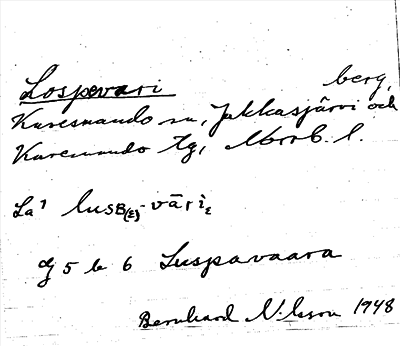 Lospevari berg,
Karesuando sn, Jukkasjärvi och
Karesuando tg, Norrb. l.
La¹ lusB(E)-vāri
Gj 5 b 6 Luspavaara
Bernhard Nilsson 1948